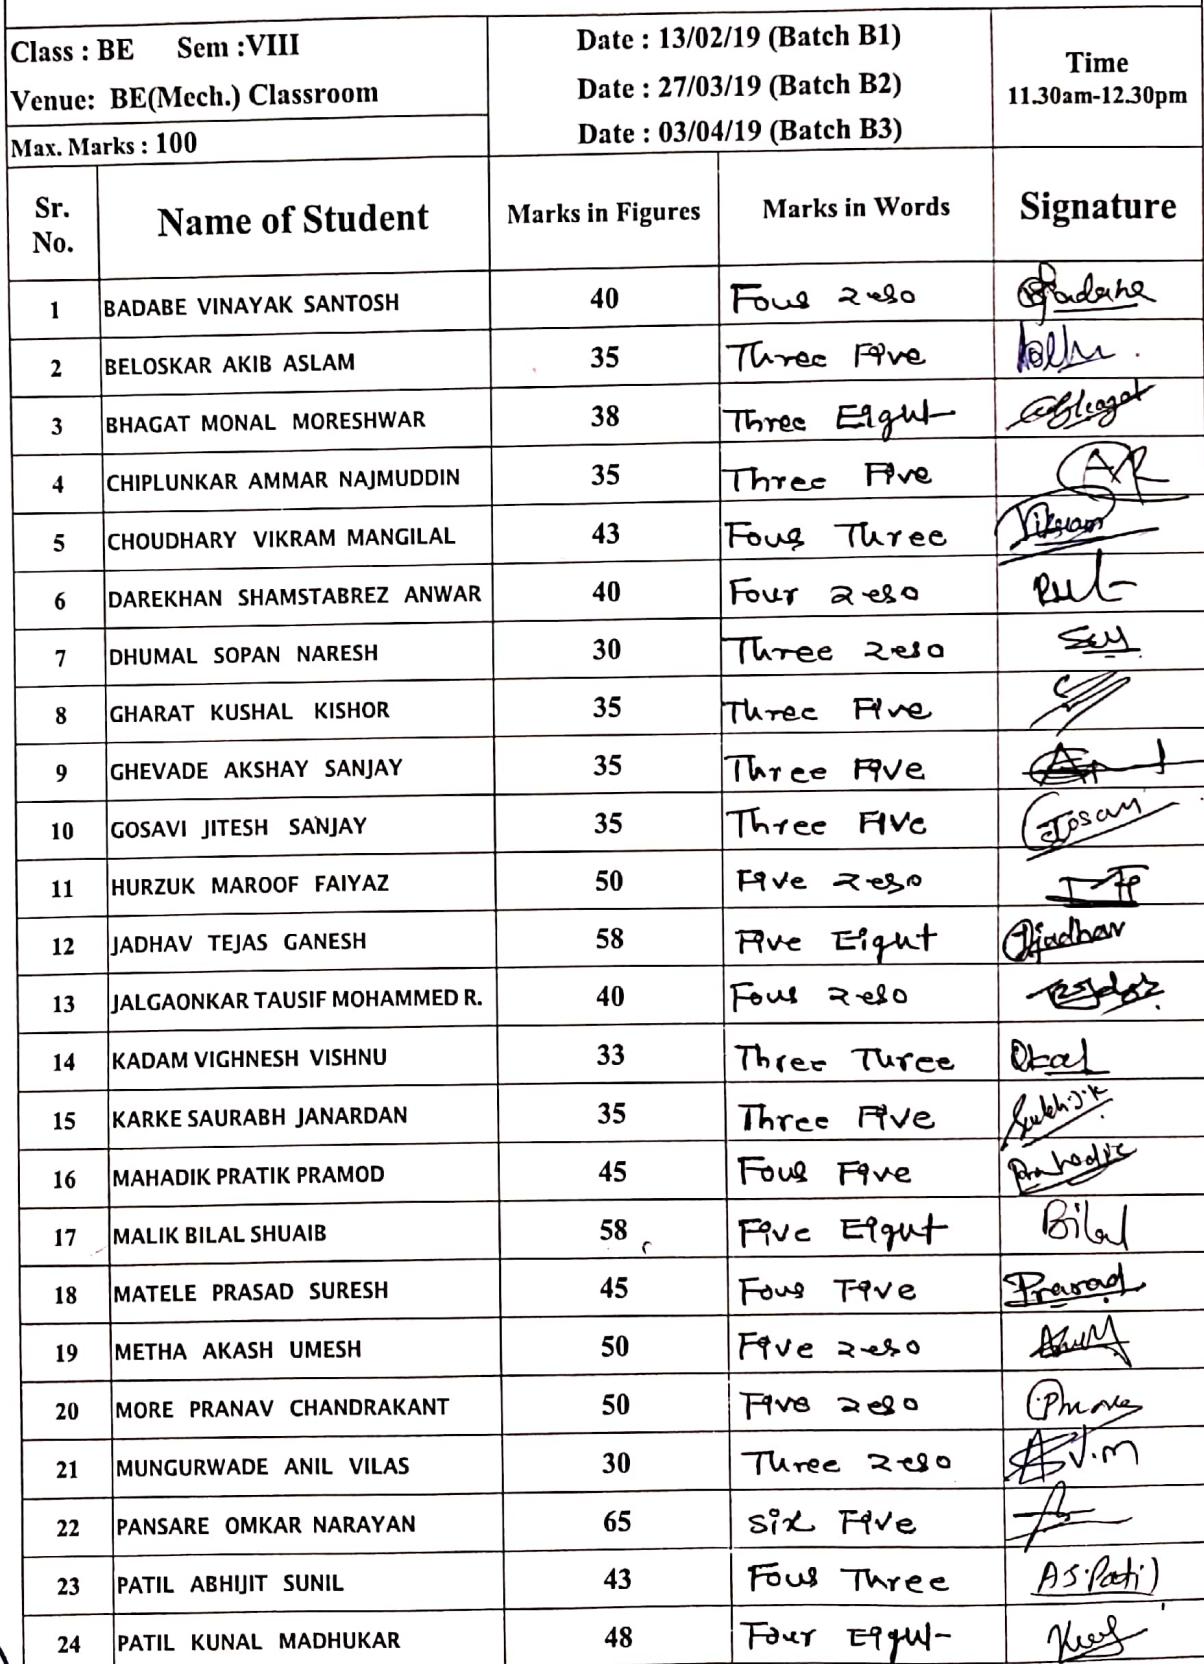 Class : BE Sem :VIII
Venue: BE(Mech.) Classroom
Max. Marks : 100
Date : 13/02/19 (Batch B1)
Date : 27/03/19 (Batch B2)
Date : 03/04/19 (Batch B3)
Time
11.30am-12.30pm
Sr. No. Name of Student Marks in Figures Marks in Words Signature
1 BADABE VINAYAK SANTOSH 40 Four zero
2 BELOSKAR AKIB ASLAM 35 Three Five
3 BHAGAT MONAL MORESHWAR 38 Three Eight
4 CHIPLUNKAR AMMAR NAJMUDDIN 35 Three Five
5 CHOUDHARY VIKRAM MANGILAL 43 Four Three Vikram
6 DAREKHAN SHAMSTABREZ ANWAR 40 Four zero
7 DHUMAL SOPAN NARESH 30 Three zero
8 GHARAT KUSHAL KISHOR 35 Three Five
9 GHEVADE AKSHAY SANJAY 35 Three Five
10 GOSAVI JITESH SANJAY 35 Three Five
11 HURZUK MAROOF FAIYAZ 50 Five zero
12 JADHAV TEJAS GANESH 58 Five Eight Tjadhav
13 JALGAONKAR TAUSIF MOHAMMED R. 40 Four zero
14 KADAM VIGHNESH VISHNU 33 Three Three
15 KARKE SAURABH JANARDAN 35 Three Five
16 MAHADIK PRATIK PRAMOD 45 Four Five
17 MALIK BILAL SHUAIB 58 Five Eight Bilal
18 MATELE PRASAD SURESH 45 Four Five Prasad
19 METHA AKASH UMESH 50 Five zero
20 MORE PRANAV CHANDRAKANT 50 Five zero
21 MUNGURWADE ANIL VILAS 30 Three zero
22 PANSARE OMKAR NARAYAN 65 Six Five
23 PATIL ABHIJIT SUNIL 43 Four Three A.S.Patil
24 PATIL KUNAL MADHUKAR 48 Four Eight